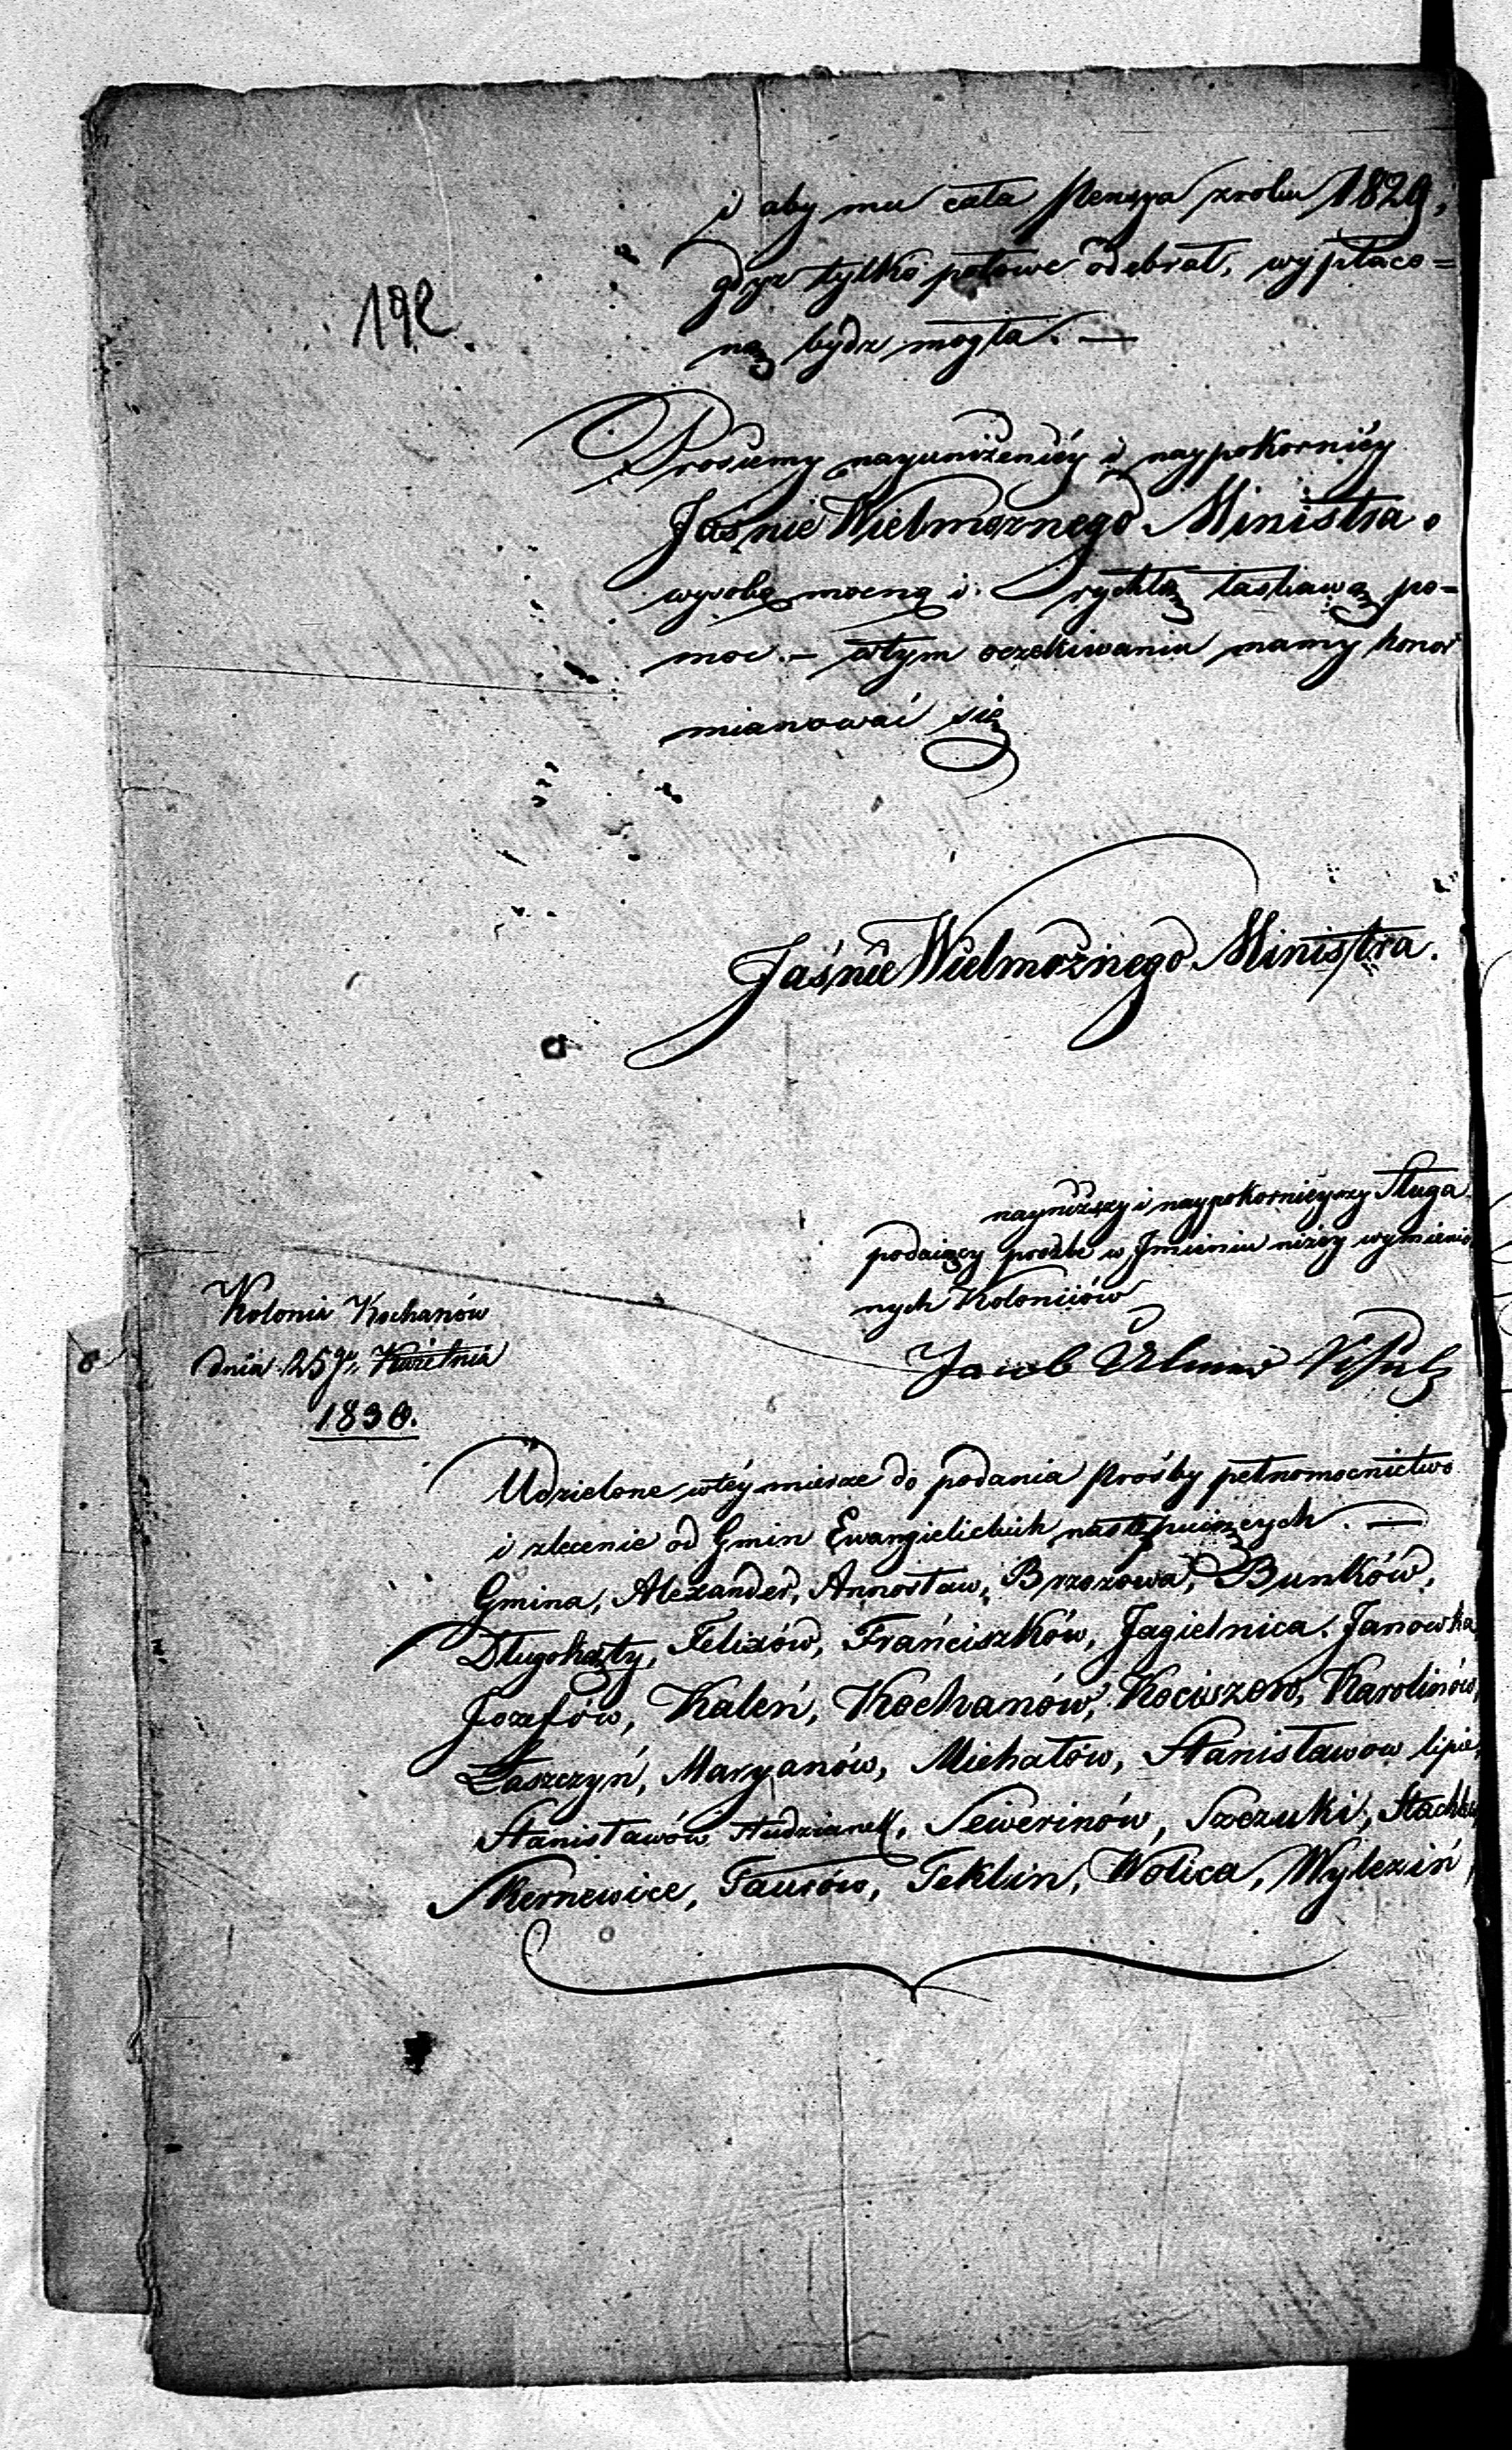 192.
i aby mu cała Pensya z roku 1829,
gdyz tylko połowe odebrał, wypłaco=
ną bydz mogła. —
Prosiemy nayuniżeniéy i naypokorniéy
Jaśnie Wielmoznego Ministra o
wysoką mocną i rychłą łaskawą po=
moc. — wtym oczekiwaniu mamy honor
mianować się
Jaśnie Wielmożnego Ministra.
nayniższy i naypokornieyszy Sługa
podaiący prozbe w Jmieniu niżey wymienio
nych Koloniiów
Kolonia Kochanów
dnia 25go Kwietnia
1830.
Jacob
Udzielone wtéy mierze do podania Prośby pełnomocnictwo
i zlecenie od Gmin Ewangielickich następuiących. —
Gmina, Alexander, Annosław, Brzozowa, Bunków,
Długokąty, Felixów, Franciszków, Jagielnica, Janowka,
Jozefów, Kaleń, Kochanów, Kociszow, Karolinów,
Łaszczyń, Maryanów, Michałów, Stanisławow lipie,
Stanisławów Studzianek, Sewerinów, Szczuki,
Skernewice, Taurów, Teklin, Wolica, Wylezin,